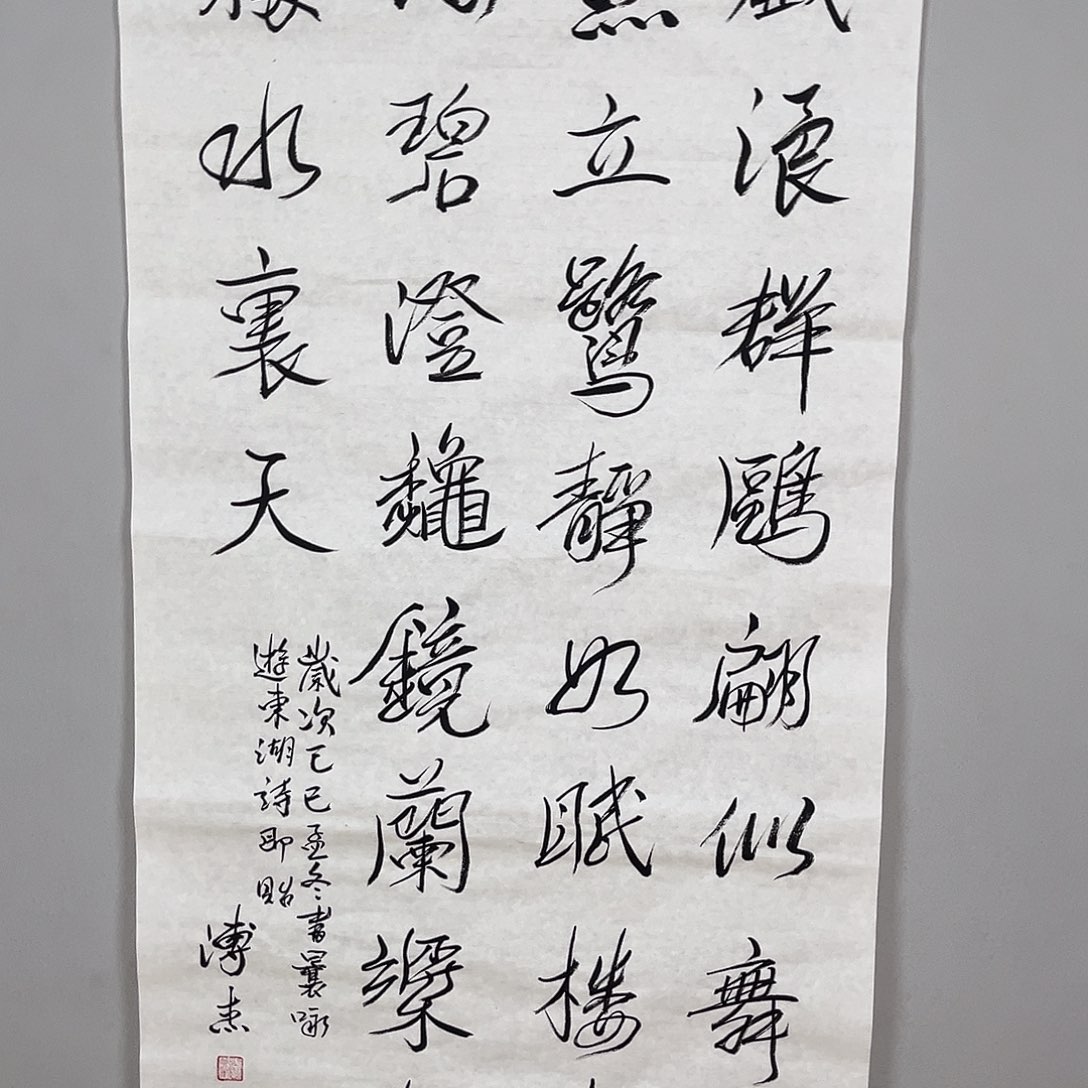 戲浪群鷗翩似舞
點立鷺靜如眠樓
碧澄龝鏡蘭槳
水裏天
歲次己巳孟冬書曩咏
遊東湖詩即貽
溥杰